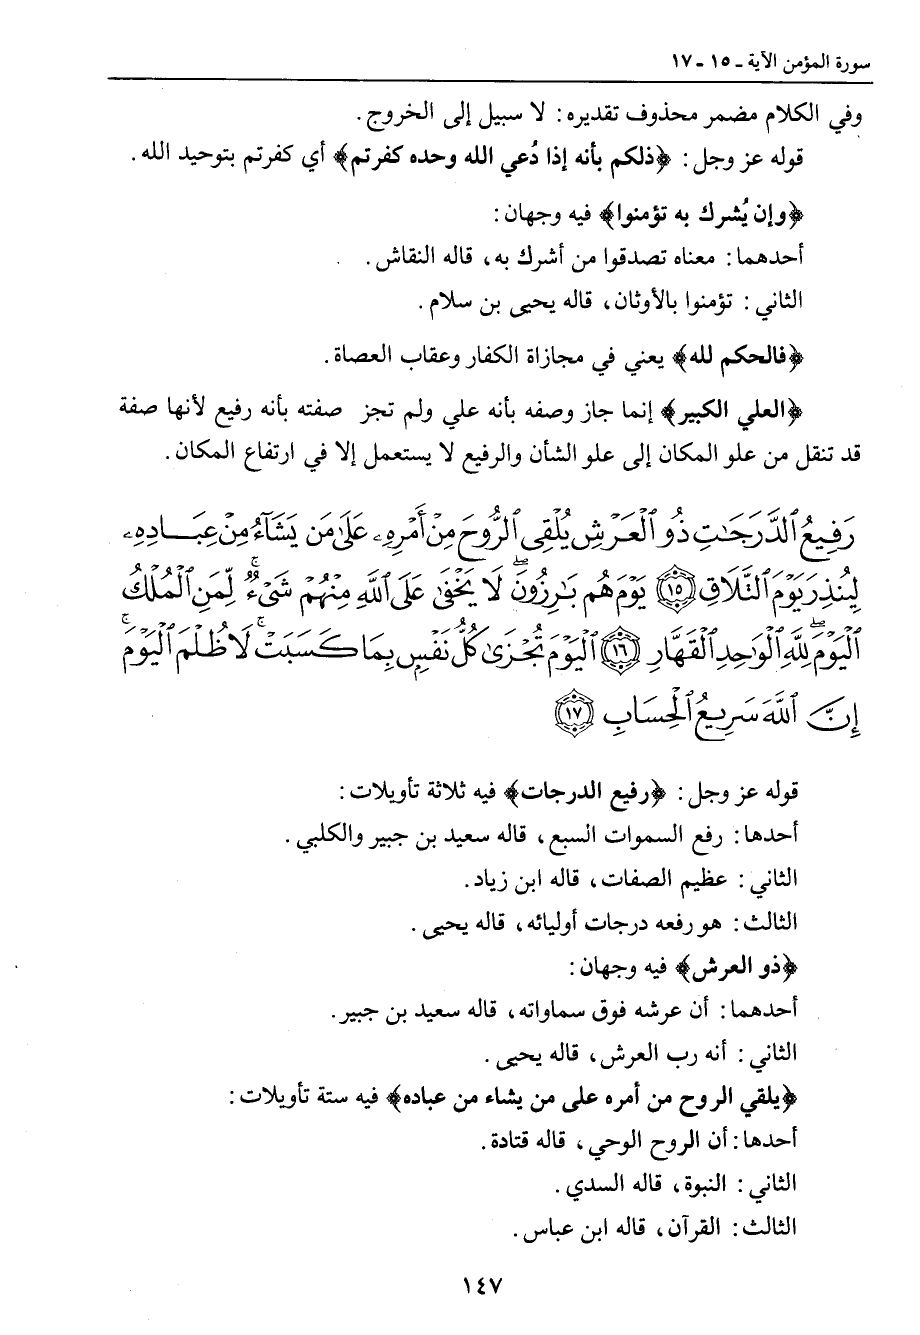 سورة المؤمن الآية ـ ١٥ ـ ١٧
وفي الكلام مضمر محذوف تقديره: لا سبيل إلى الخروج.
قوله عز وجل: ﴿ذلكم بأنه إذا دُعي الله وحده كفرتم﴾ أي كفرتم بتوحيد الله.
﴿وإن يُشرك به تؤمنوا﴾ فيه وجهان:
أحدهما: معناه تصدقوا من أشرك به، قاله النقاش.
الثاني: تؤمنوا بالأوثان، قاله يحيى بن سلام.
﴿فالحكم لله﴾ يعني في مجازاة الكفار وعقاب العصاة.
﴿العلي الكبير﴾ إنما جاز وصفه بأنه علي ولم تجز صفته بأنه رفيع لأنها صفة
قد تنقل من علو المكان إلى علو الشأن والرفيع لا يستعمل إلا في ارتفاع المكان.
رَفِيعُ ٱلدَّرَجَٰتِ ذُو ٱلْعَرْشِ يُلْقِى ٱلرُّوحَ مِنْ أَمْرِهِۦ عَلَىٰ مَن يَشَآءُ مِنْ عِبَادِهِۦ
لِيُنذِرَ يَوْمَ ٱلتَّلَاقِ ١٥ يَوْمَ هُم بَٰرِزُونَۖ لَا يَخْفَىٰ عَلَى ٱللَّهِ مِنْهُمْ شَىْءٌۚ لِّمَنِ ٱلْمُلْكُ
ٱلْيَوْمَۖ لِلَّهِ ٱلْوَٰحِدِ ٱلْقَهَّارِ ١٦ ٱلْيَوْمَ تُجْزَىٰ كُلُّ نَفْسٍۭ بِمَا كَسَبَتْۚ لَا ظُلْمَ ٱلْيَوْمَۚ
إِنَّ ٱللَّهَ سَرِيعُ ٱلْحِسَابِ ١٧
قوله عز وجل: ﴿رفيع الدرجات﴾ فيه ثلاثة تأويلات:
أحدها: رفع السموات السبع، قاله سعيد بن جبير والكلبي.
الثاني: عظيم الصفات، قاله ابن زياد.
الثالث: هو رفعه درجات أوليائه، قاله يحيى.
﴿ذو العرش﴾ فيه وجهان:
أحدهما: أن عرشه فوق سماواته، قاله سعيد بن جبير.
الثاني: أنه رب العرش، قاله يحيى.
﴿يلقي الروح من أمره على من يشاء من عباده﴾ فيه ستة تأويلات:
أحدها: أن الروح الوحي، قاله قتادة.
الثاني: النبوة، قاله السدي.
الثالث: القرآن، قاله ابن عباس.
١٤٧